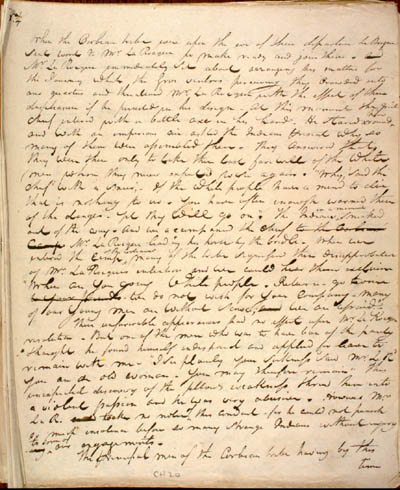 When the Corbeau tribe were upon the eve of their departure Le Borgne
Sent word to Mr. La Rocque to make ready and join them.
Mr. La Rocque immediately set about arranging this matter for
the Journey whilst the Gros Ventres
one quarter and threatened Mr. La Rocque with the effect of their
displeasure if he persisted in his design. At this moment the great
Chief entered with a battle axe in his hand. He stared round,
and with an imperious air asked the Indians present why so
many of them were assembled there. They answered that
they were there only to take their last farewell of the White
men whom they never expected to see again. Why, said the
Chief with a Sneer; If the White people have a mind to die
that is nothing to us. You have often enough warned them
of the danger. Yet they will go on. The Indians sneaked
out of the way and we accompanied the Chief to the Corbeau
Camp Mr. La Rocque leading his horse by the bridle. When we
entered the Camp, many of the Indians signified their disapprobation
of Mr. La Rocque's intention and we could hear them exclaim
Where are you going White people. Return, go home
We do not wish for your Company. Many
of our Young men are without Sense, we are afraid
These unfavorable appearances had no effect upon Mr. La Rocque's
resolution. But one of the men who was to have been of the party
thought he found himself and applied for leave to
remain with me. I see plainly your Sulkiness said Mr. La R.
You are an old woman. You may therefore remain. This
unexpected discovery of the fellow's weakness threw him into
a violent passion and he was very abusive. However Mr.
La R. took no notice of this conduct for he could not punish
so much insolence before so many strange Indians without injury
to his engagements.
The Principal men of the Corbeau tribe having by this
time
CH20